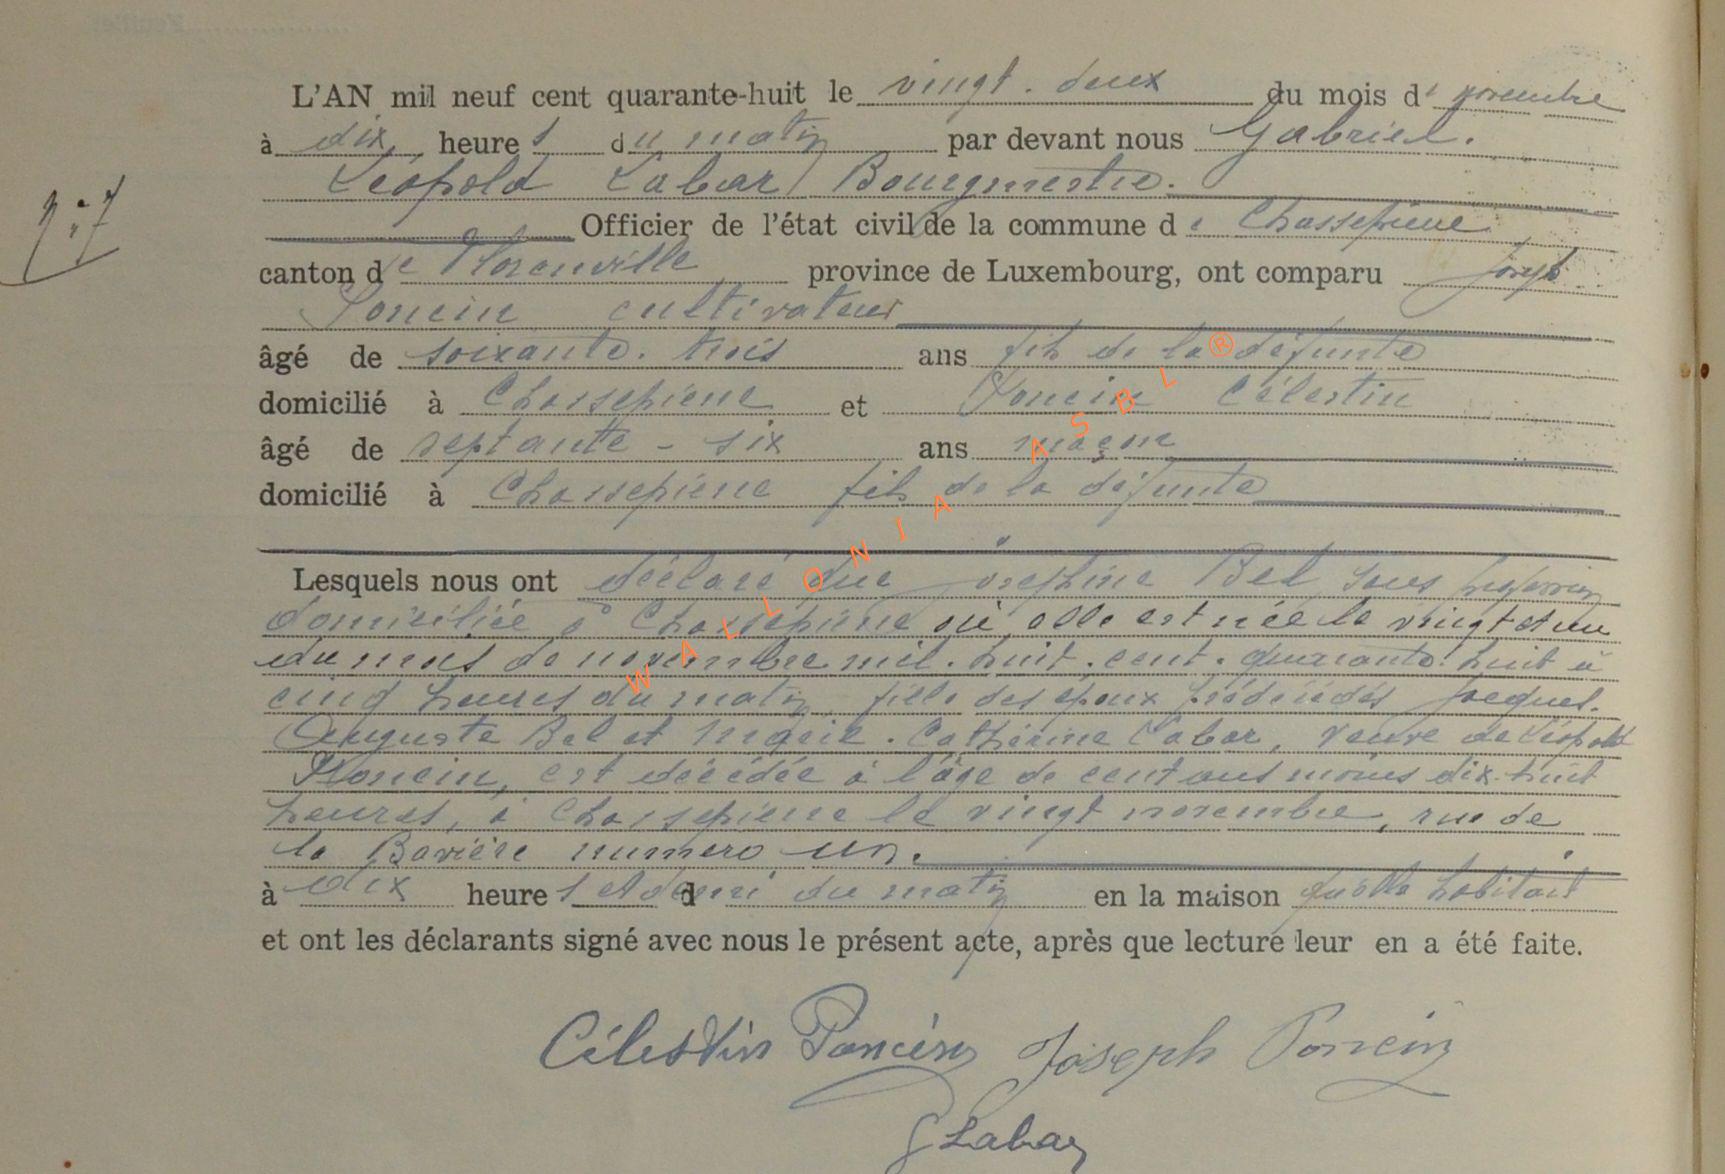 L'AN mil neuf cent quarante-huit le vingt-deux du mois de novembre
à dix heures du matin par devant nous Gabriel.
Léopold Labar, Bourgmestre.
Officier de l'état civil de la commune de Chassepierre
canton de Florenville province de Luxembourg, ont comparu Joseph
Poncin cultivateur
âgé de soixante-trois ans fils de la défunte
domicilié à Chassepierre et Poncin Célestin
âgé de septante-six ans maçon
domicilié à Chassepierre fils de la défunte
Lesquels nous ont déclaré que Joséphine Bel sans profession
domiciliée à Chassepierre où elle est née le vingt et un
du mois de novembre mil-huit-cent-quarante-huit à
cinq heures du matin fille des époux prédécédés Jacques-
Auguste Bel et Marie-Catherine Labar, veuve de Léopold
Poncin, est décédée à l'âge de cent ans moins dix-huit
heures, à Chassepierre le vingt novembre, rue de
la Bavière numéro un.
à dix heures et demi du matin en la maison qu'elle habitait
et ont les déclarants signé avec nous le présent acte, après que lecture leur en a été faite.
Célestin Poncin Joseph Poncin
G Labar
WALLONIA ASBL®